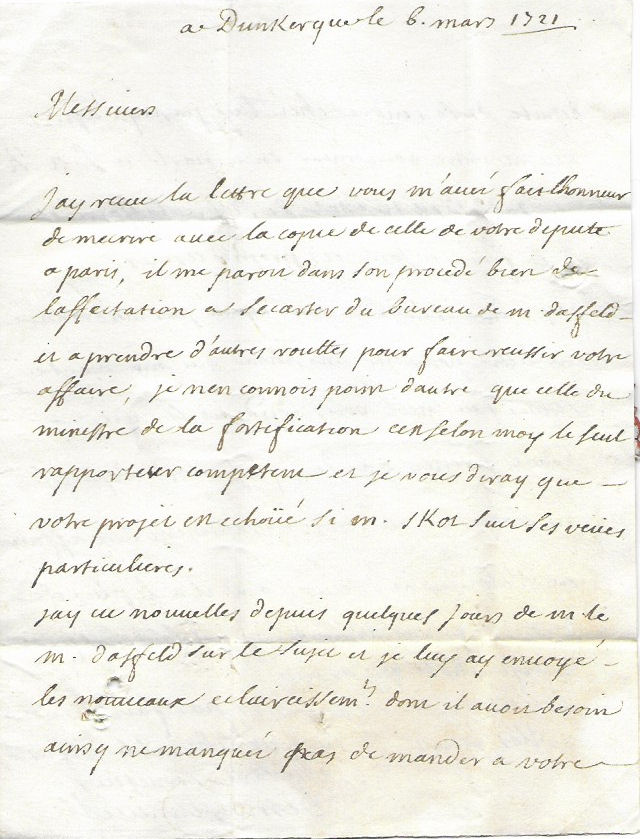 a Dunkerque le 6. mars 1721
Messieurs
Jay receu la lettre que vous m'avés fait lhonneur
de mecrire avec la copie de celle de votre depute
a paris, il me paroit dans son procedé bien de
laffectation a secarter du bureau de m. dasfeld
et a prendre d'autres routtes pour faire reussir votre
affaire, je nen connois point dautre que celle du
ministre de la fortification cest selon moy le seul
rapporteur competent et je vous diray que
votre projet est echoüé si m. skot suit ses veües
particulieres.
jay eu nouvelles depuis quelques jours de m. le
m. dasfeld sur le sujet et je luy ay envoyé
les nouveaux eclaircissemts. dont il avoit besoin
ainsy ne manqués pas de mander a votre